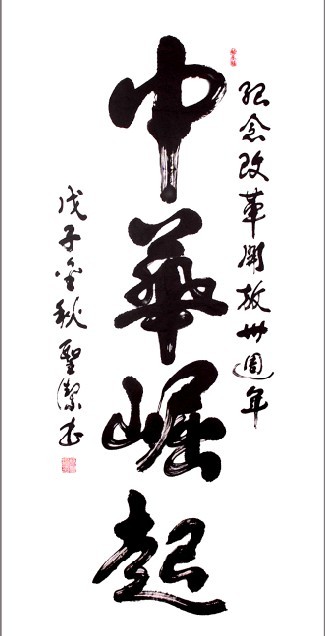 紀念改革開放卅週年
中華崛起
戊子金秋聖潔書